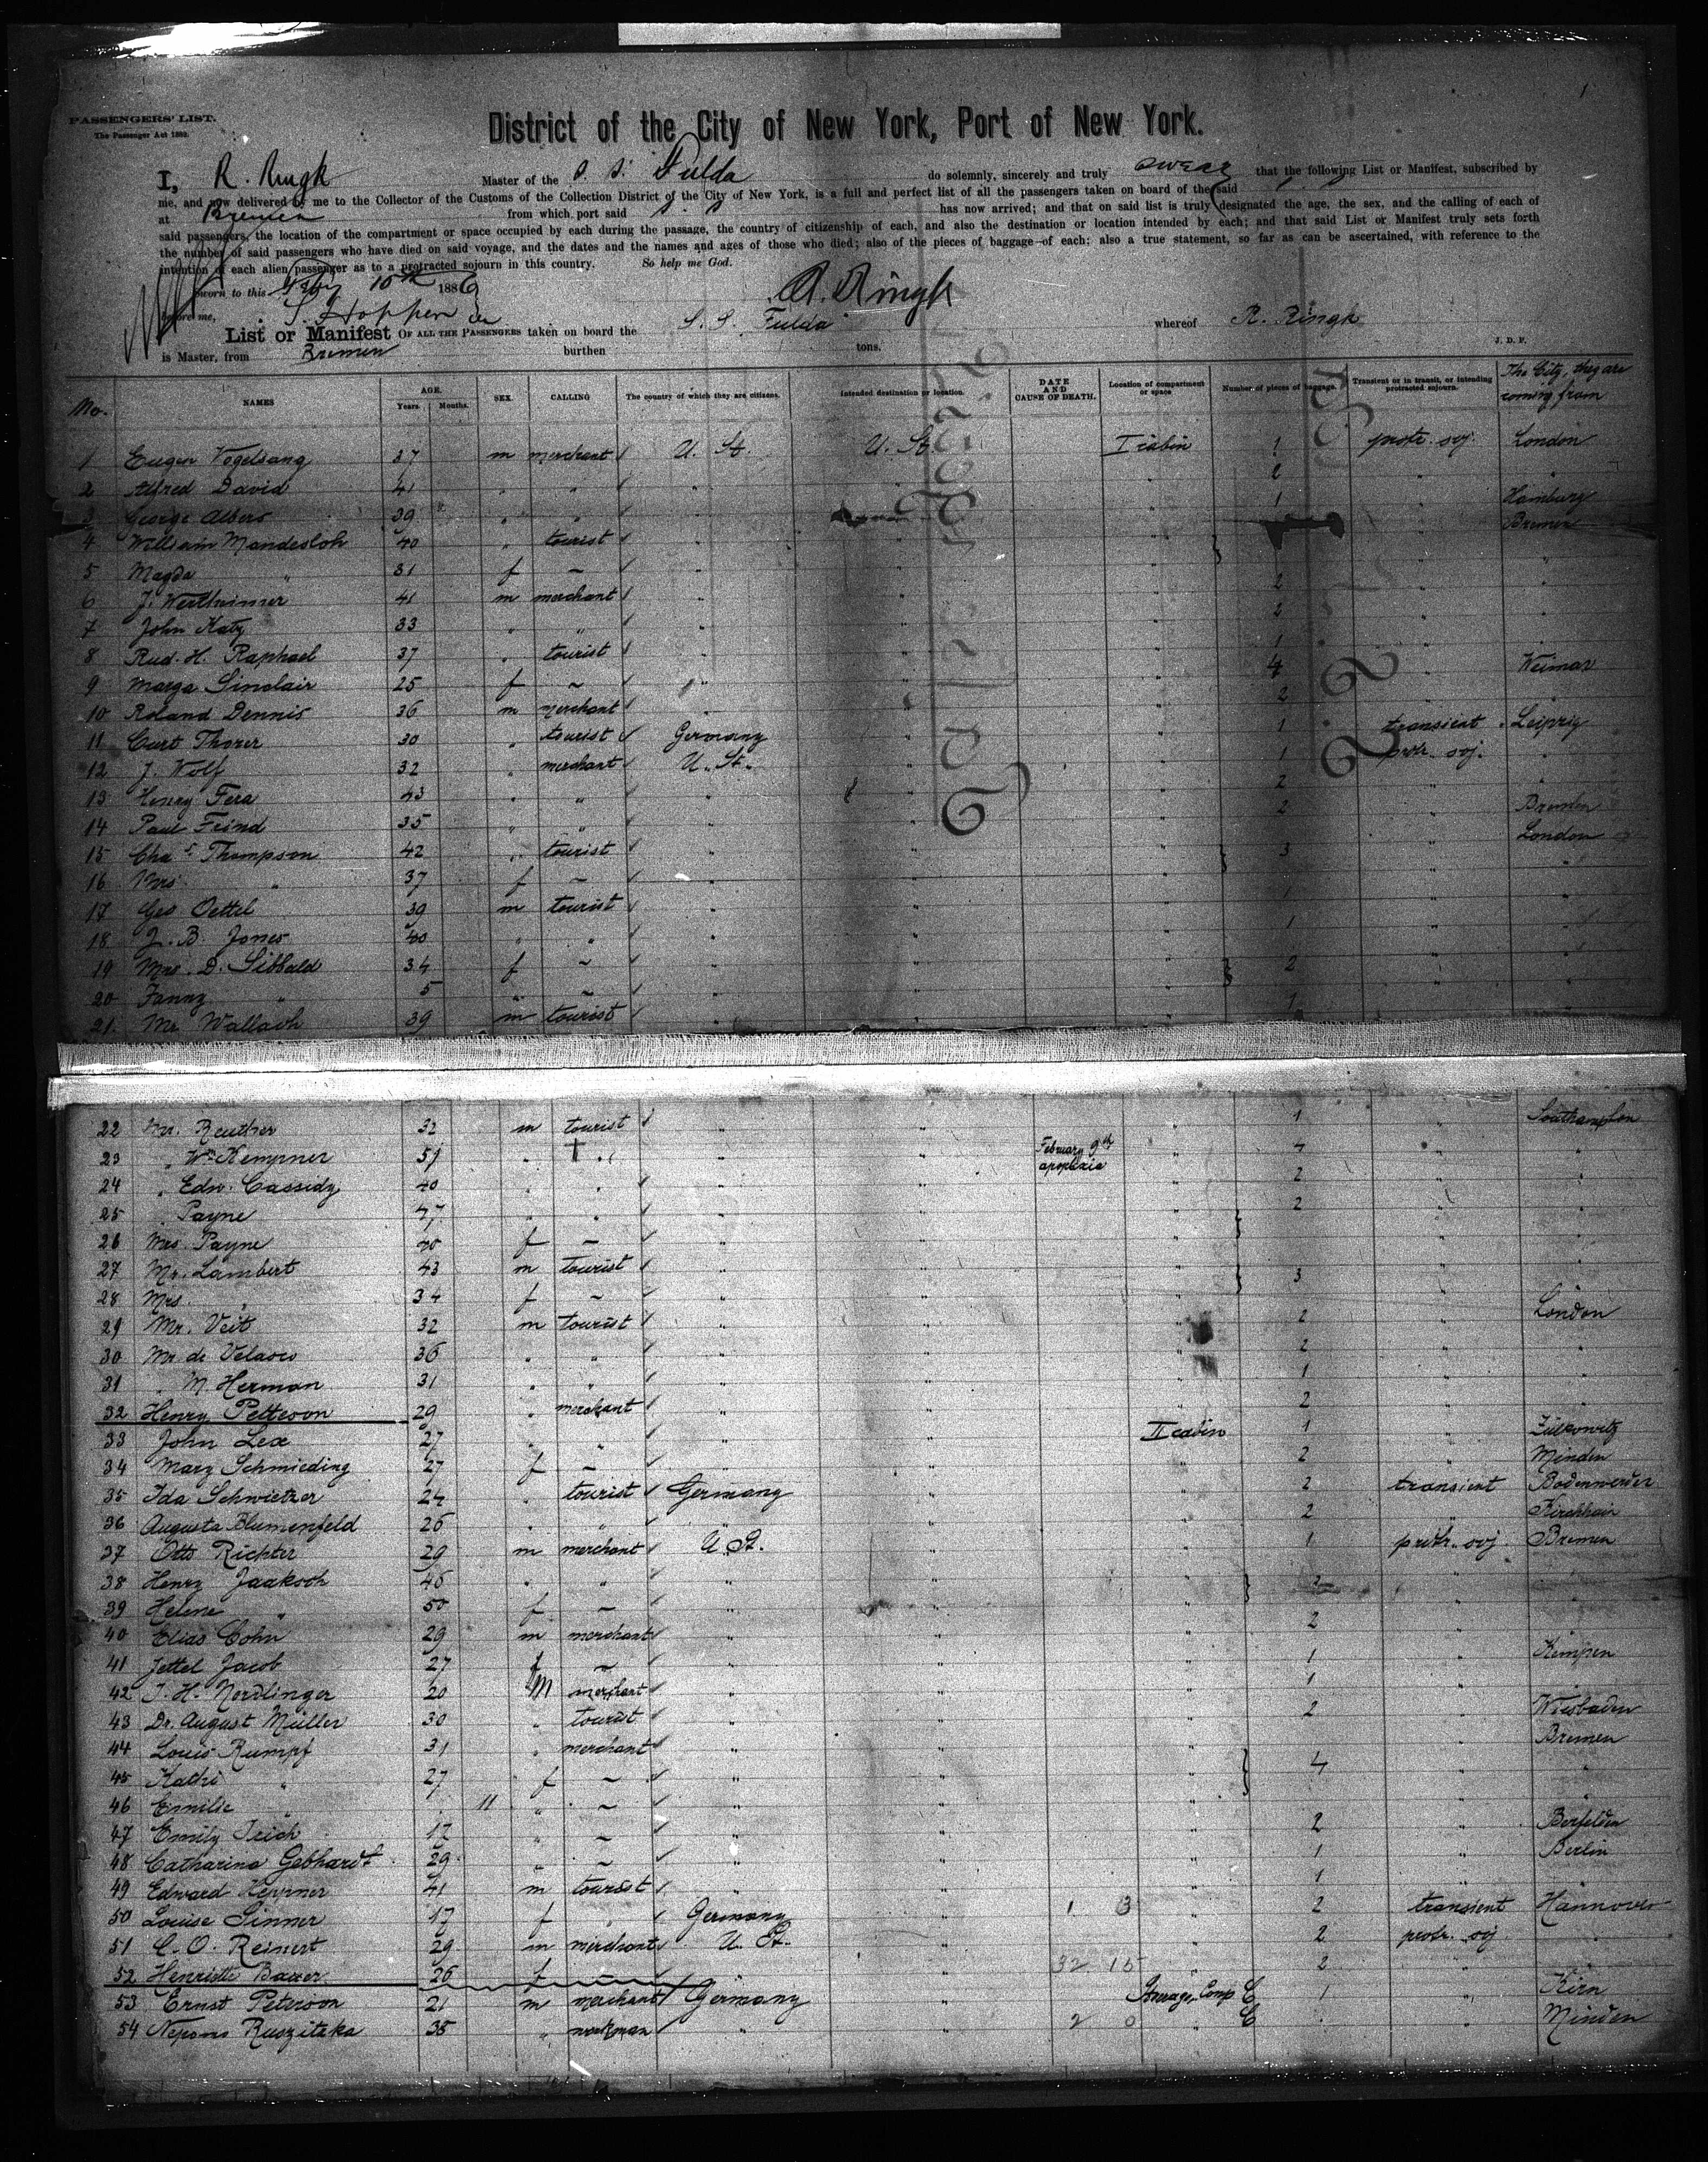 1
PASSENGERS' LIST.
The Passenger Act 1882.
District of the City of New York, Port of New York.
I, R. Ringk Master of the S. S. Fulda do solemnly, sincerely and truly swear that the following List or Manifest, subscribed by
me, and now delivered by me to the Collector of the Customs of the Collection District of the City of New York, is a full and perfect list of all the passengers taken on board of the said S. S.
at Bremen from which port said S. S. has now arrived; and that on said list is truly designated the age, the sex, and the calling of each of
said passengers, the location of the compartment or space occupied by each during the passage, the country of citizenship of each, and also the destination or location intended by each; and that said List or Manifest truly sets forth
the number of said passengers who have died on said voyage, and the dates and the names and ages of those who died; also of the pieces of baggage of each; also a true statement, so far as can be ascertained, with reference to the
intention of each alien passenger as to a protracted sojourn in this country. So help me God.
Sworn to this Feby 10th 1886 R. Ringk
before me, S. Hoppen
List or Manifest OF ALL THE PASSENGERS taken on board the S. S. Fulda whereof R. Ringk
is Master, from Bremen burthen tons. J. D. P.
No. NAMES AGE. Years. Months. SEX. CALLING The country of which they are citizens. Intended destination or location. DATE AND CAUSE OF DEATH. Location of compartment or space Number of pieces of baggage. Transient or in transit, or intending protracted sojourn. The City, they are coming from
1 Eugen Vogelsang 37 m merchant U. St. U. St. I cabin 1 protr. soj. London
2 Alfred David 41 " " " 2 " "
3 George Albers 39 " " " 1 " Hamburg
4 William Mandesloh 40 " tourist " Bremen
5 Magda " 31 f ~ " "
6 J. Wertheimer 41 m merchant " 2 " "
7 John Katz 33 " " " 2 " "
8 Rud. H. Raphael 37 " tourist " 1 " "
9 Marga Sinclair 25 f ~ " 4 " Weimar
10 Roland Dennis 36 m merchant " 2 " "
11 Curt Thorer 30 " tourist Germany 1 transient Leipzig
12 J. Wolf 32 " merchant U. St. 1 protr. soj. "
13 Henry Fera 43 " " " 2 " "
14 Paul Feind 35 " " " 2 " Bremen
15 Chas. Thompson 42 " tourist " 3 " London
16 Mrs " 37 f ~ " "
17 Geo Oettel 39 m tourist " 1 " "
18 J. B. Jones 40 " " " 1 " "
19 Mrs. D. Sibbald 34 f ~ " 2 " "
20 Fanny " 5 " ~ " "
21. Mr Wallach 39 m tourist " 1 "
22 Mr. Reuther 32 m tourist " 1 " Southampton
23 " Wm Kempner 51 " † " " February 9th apoplexia 4 " "
24 " Edw. Cassidy 40 " " " 2 " "
25 " Payne 47 " " " 2 " "
26 Mrs Payne 40 f ~ " "
27 Mr. Lambert 43 m tourist " 3 " "
28 Mrs. " 34 f ~ " "
29 Mr. Veit 32 m tourist " 2 " London
30 Mr de Velasco 36 " " " 2 " "
31 " M. Herman 31 " " " 1 " "
32 Henry Petterson 29 " merchant " 2 " "
33 John Lex 27 " " " II cabin 1 "
34 Mary Schmieding 27 f ~ " 2 " Minden
35 Ida Schwietzer 24 " tourist Germany 2 transient Bodenwerder
36 Augusta Blumenfeld 26 " " " 2 " Kirchhain
37 Otto Richter 29 m merchant U. St. 1 protr. soj. Bremen
38 Henry Jaaksch 46 " " " 2 " "
39 Helene " 50 f ~ " "
40 Elias Cohn 29 m merchant " 2 " "
41 Jettel Jacob 27 f ~ " 1 " Kempen
42 J. H. Nordlinger 20 M merchant " 1 " "
43 Dr. August Müller 30 " tourist " 2 " Wiesbaden
44 Louis Rumpf 31 " merchant " 4 " Bremen
45 Kathi " 27 f ~ " " "
46 Emilie " 11 " ~ " "
47 Emily Teich 17 " ~ " 2 " Berfelden
48 Catharina Gebhardt 29 " ~ " 1 " Berlin
49 Edward Keppner 41 m tourist " 1 " "
50 Louise Sinner 17 f " Germany 1 3 2 transient Hannover
51 C. O. Reinert 29 m merchant U. St. 2 protr. soj. "
52 Henriette Bauer 26 f ~ " 32 15 2 " "
53 Ernst Peterson 21 m merchant Germany Steerage Comp C 1 " Kirn
54 Nepomo Ruszitzka 35 " workman " 2 0 " C " Minden